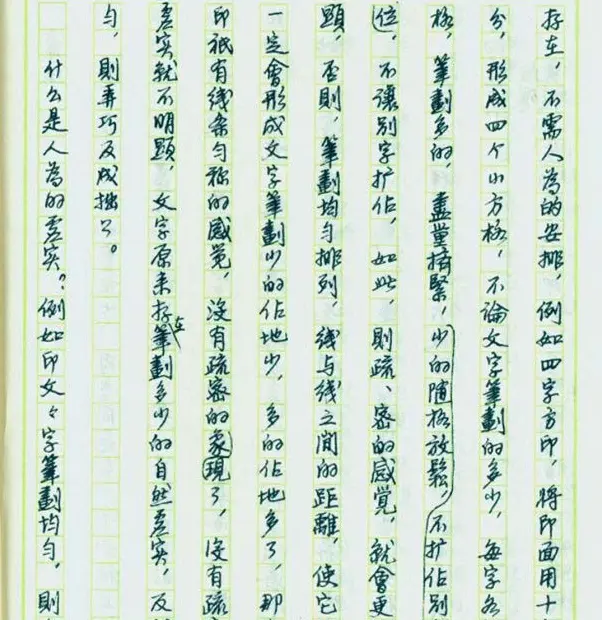 存在，不需人為的安排，例如四字方印，將印面用十
分，形成四个小方格，不論文字筆劃的多少，每字各
格，筆劃多的，盡量擠緊，少的随格放鬆，不扩佔别
位，不讓别字扩佔，如此，則疏、密的感觉，就會更
顕，否則，筆劃均匀排列，线与线之间的距離，使它
一定會形成文字筆劃少的佔地少，多的佔地多了，那
印祇有线条匀称的感觉，沒有疏密的象現了，沒有疏
虚实就不明顕，文字原来存在筆劃多少的自然虚实，反
匀，則弄巧反成拙了。
什么是人為的虚实？例如印文々字筆劃均匀，則